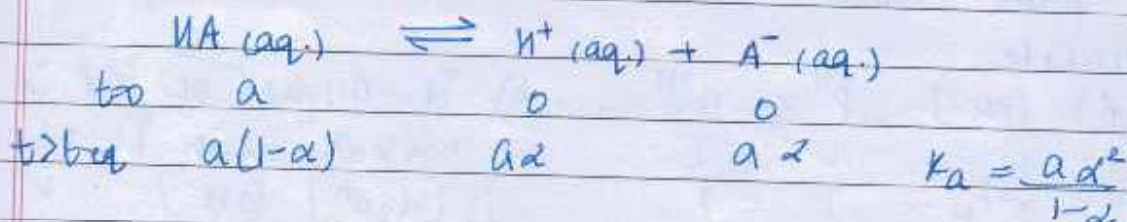 HA (aq.) ⇌ H⁺ (aq.) + A⁻ (aq.)
t=0 a 0 0
t>teq a(1-α) aα aα Ka = aα²/1-α